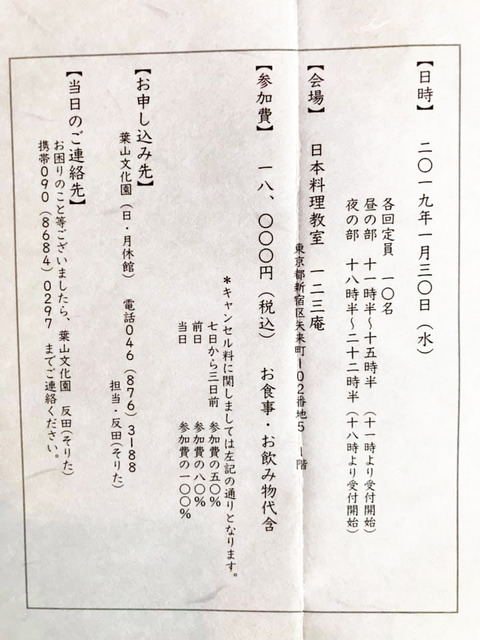 【日時】 二〇一九年一月三〇日（水）
各回定員 一〇名
昼の部 十一時半〜十五時半 （十一時より受付開始）
夜の部 十八時半〜二十二時半 （十八時より受付開始）
【会場】 日本料理教室 一二三庵
東京都新宿区矢来町102番地5 1階
【参加費】 一八、〇〇〇円（税込） お食事・お飲み物代含
*キャンセル料に関しましては左記の通りとなります。
七日から三日前 参加費の五〇%
前日 参加費の八〇%
当日 参加費の一〇〇%
【お申し込み先】
葉山文化園（日・月休館） 電話046（876）3188
担当・反田（そりた）
【当日のご連絡先】
お困りのこと等ございましたら、葉山文化園 反田（そりた）
携帯090（8684）0297 までご連絡ください。